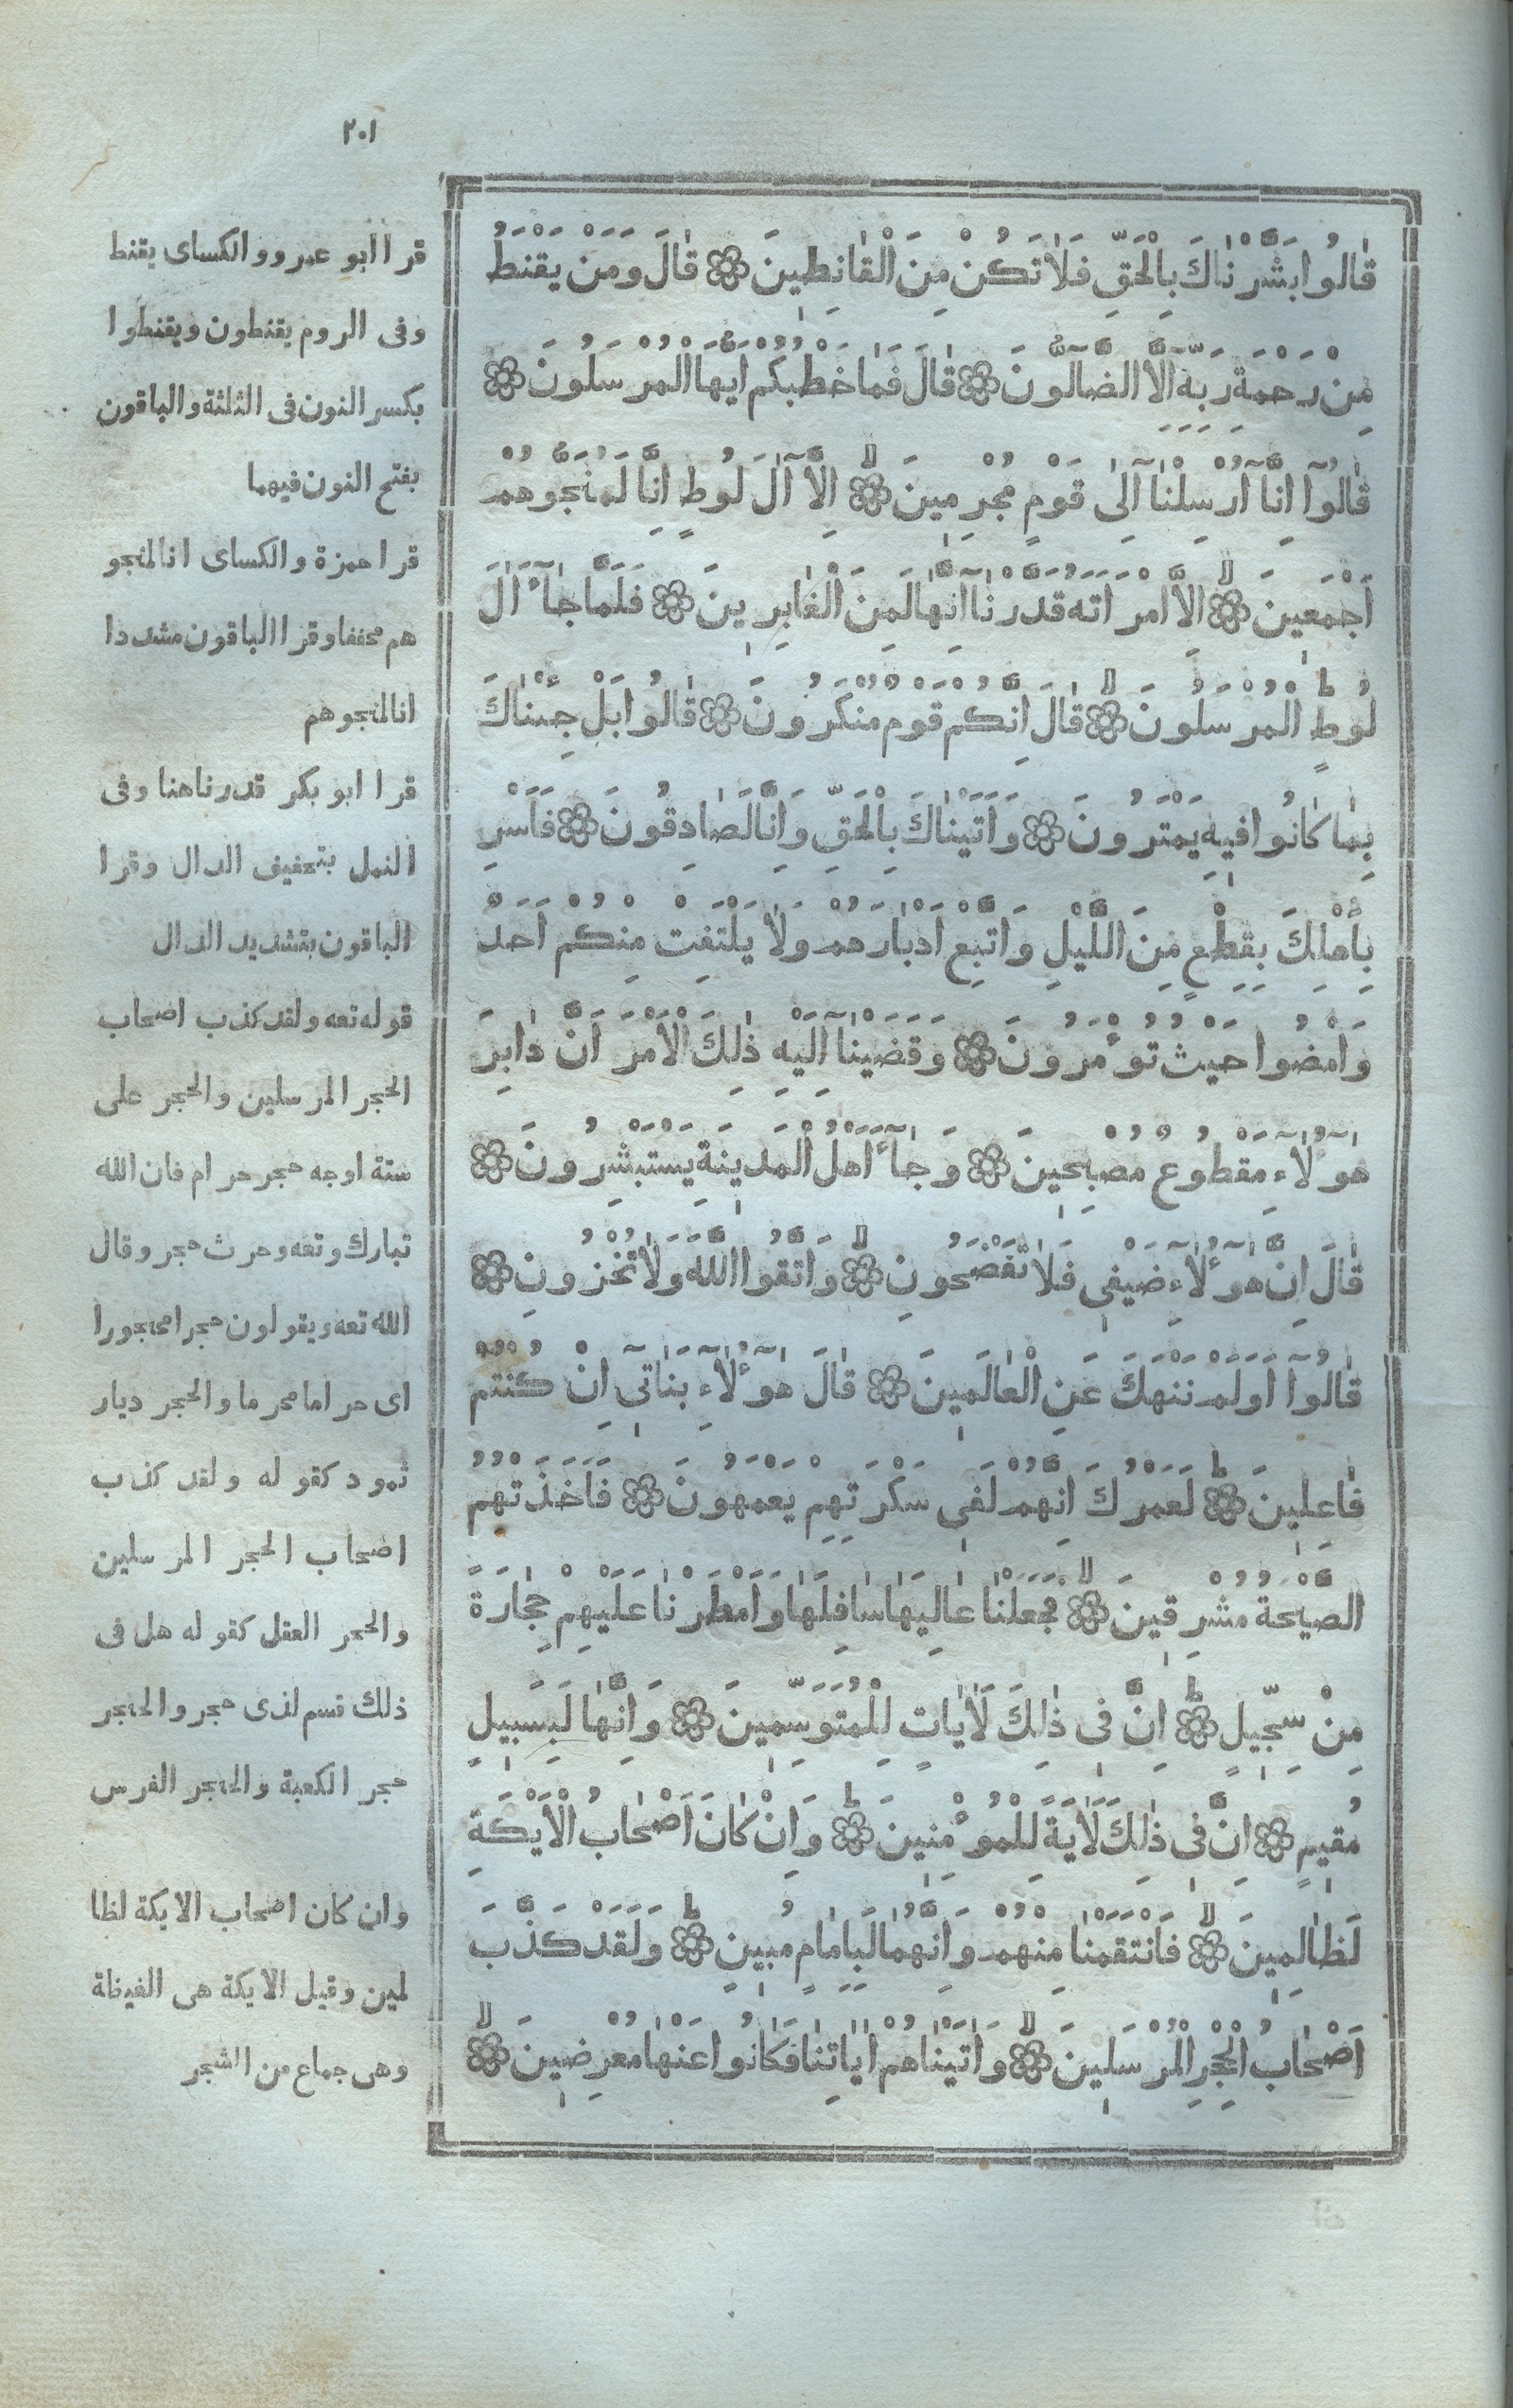 ٢٠١
قَالُوا بَشَّرْنَاكَ بِالْحَقِّ فَلَا تَكُنْ مِنَ الْقَانِطِينَ ۞ قَالَ وَمَنْ يَقْنَطُ
مِنْ رَحْمَةِ رَبِّهِٓ اِلَّا الضَّآلُّونَ ۞ قَالَ فَمَا خَطْبُكُمْ اَيُّهَا الْمُرْسَلُونَ ۞
قَالُوٓا اِنَّٓا اُرْسِلْنَٓا اِلَى قَوْمٍ مُجْرِمِينَ ۞ اِلَّٓا اٰلَ لُوطٍ اِنَّا لَمُنَجُّوهُمْ
اَجْمَعِينَ ۞ اِلَّا امْرَاَتَهُ قَدَّرْنَٓا اِنَّهَا لَمِنَ الْغَابِرِينَ ۞ فَلَمَّا جَآءَ اٰلَ
لُوطٍ الْمُرْسَلُونَ ۞ قَالَ اِنَّكُمْ قَوْمٌ مُنْكَرُونَ ۞ قَالُوا بَلْ جِئْنَاكَ
بِمَا كَانُوا فِيهِ يَمْتَرُونَ ۞ وَاَتَيْنَاكَ بِالْحَقِّ وَاِنَّا لَصَادِقُونَ ۞ فَاَسْرِ
بِاَهْلِكَ بِقِطْعٍ مِنَ اللَّيْلِ وَاتَّبِعْ اَدْبَارَهُمْ وَلَا يَلْتَفِتْ مِنْكُمْ اَحَدٌ
وَامْضُوا حَيْثُ تُؤْمَرُونَ ۞ وَقَضَيْنَٓا اِلَيْهِ ذٰلِكَ الْاَمْرَ اَنَّ دَابِرَ
هٰٓؤُلَآءِ مَقْطُوعٌ مُصْبِحِينَ ۞ وَجَآءَ اَهْلُ الْمَدِينَةِ يَسْتَبْشِرُونَ ۞
قَالَ اِنَّ هٰٓؤُلَآءِ ضَيْفِى فَلَا تَفْضَحُونِ ۞ وَاتَّقُوا اللّٰهَ وَلَا تُخْزُونِ ۞
قَالُوٓا اَوَلَمْ نَنْهَكَ عَنِ الْعَالَمِينَ ۞ قَالَ هٰٓؤُلَآءِ بَنَاتِىٓ اِنْ كُنْتُمْ
فَاعِلِينَ ۞ لَعَمْرُكَ اِنَّهُمْ لَفِى سَكْرَتِهِمْ يَعْمَهُونَ ۞ فَاَخَذَتْهُمُ
الصَّيْحَةُ مُشْرِقِينَ ۞ فَجَعَلْنَا عَالِيَهَا سَافِلَهَا وَاَمْطَرْنَا عَلَيْهِمْ حِجَارَةً
مِنْ سِجِّيلٍ ۞ اِنَّ فِى ذٰلِكَ لَاٰيَاتٍ لِلْمُتَوَسِّمِينَ ۞ وَاِنَّهَا لَبِسَبِيلٍ
مُقِيمٍ ۞ اِنَّ فِى ذٰلِكَ لَاٰيَةً لِلْمُؤْمِنِينَ ۞ وَاِنْ كَانَ اَصْحَابُ الْاَيْكَةِ
لَظَالِمِينَ ۞ فَانْتَقَمْنَا مِنْهُمْ وَاِنَّهُمَا لَبِاِمَامٍ مُبِينٍ ۞ وَلَقَدْ كَذَّبَ
اَصْحَابُ الْحِجْرِ الْمُرْسَلِينَ ۞ وَاٰتَيْنَاهُمْ اٰيَاتِنَا فَكَانُوا عَنْهَا مُعْرِضِينَ ۞
قرا ابو عمرو والكساى يقنط
وفى الروم يقنطون ويقنطوا
بكسر النون فى الثلثة والباقون
بفتح النون فيهما
قرا حمزة والكساى انا لمنجو
هم مخففا وقرا الباقون مشددا
انا لمنجوهم
قرا ابو بكر قدرنا هنا وفى
النمل بتخفيف الدال وقرا
الباقون بتشديد الدال
قوله تعه ولقد كذب اصحاب
الحجر المرسلين والحجر على
ستة اوجه حجر حرام فان الله
تبارك وتعه وحرث حجر وقال
الله تعه ويقولون حجرا محجورا
اى حراما محرما والحجر ديار
ثمود كقوله ولقد كذب
اصحاب الحجر المرسلين
والحجر العقل كقوله هل فى
ذلك قسم لذى حجر والحجر
حجر الكعبة والحجر الفرس
وان كان اصحاب الايكة لظا
لمين وقيل الايكة هى الغيظة
وهى جماع من الشجر